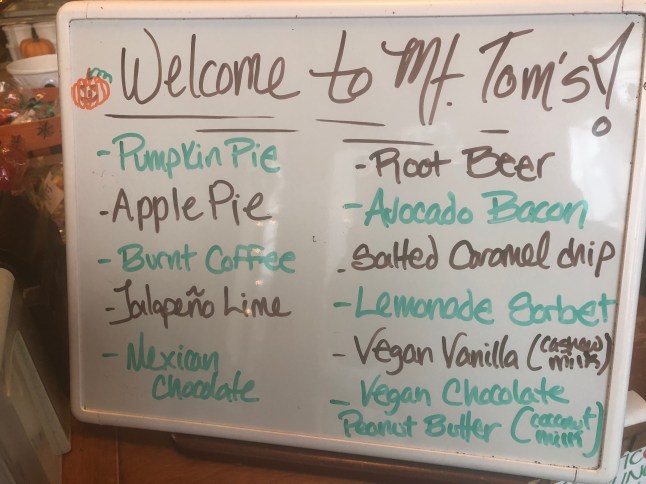 Welcome to Mt. Tom's!
- Pumpkin Pie
- Apple Pie
- Burnt Coffee
- Jalapeño Lime
- Mexican
Chocolate
- Root Beer
- Avocado Bacon
- Salted Caramel chip
- Lemonade Sorbet
- Vegan Vanilla (cashew milk)
- Vegan Chocolate
Peanut Butter (coconut milk)